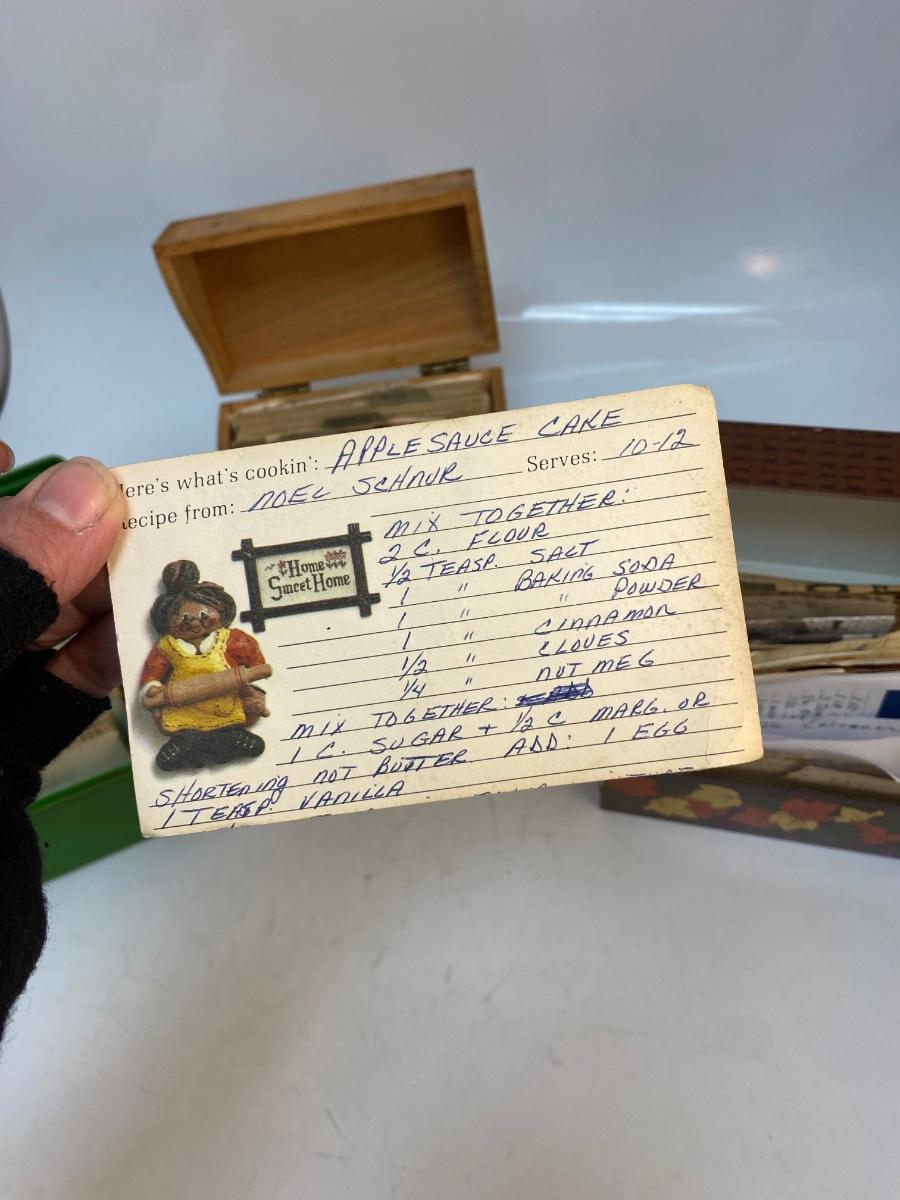 Here's what's cookin': APPLESAUCE CAKE Serves: 10-12
Recipe from: NOEL SCHNUR
Home
Sweet Home
MIX TOGETHER:
2 C. FLOUR
1/2 TEASP. SALT
1 " BAKING SODA
1 " " POWDER
1 " CINNAMON
1/2 " CLOVES
1/4 " NUTMEG
MIX TOGETHER:
1 C. SUGAR + 1/2 C MARG. OR
SHORTENING NOT BUTTER ADD: 1 EGG
1 TEASP. VANILLA